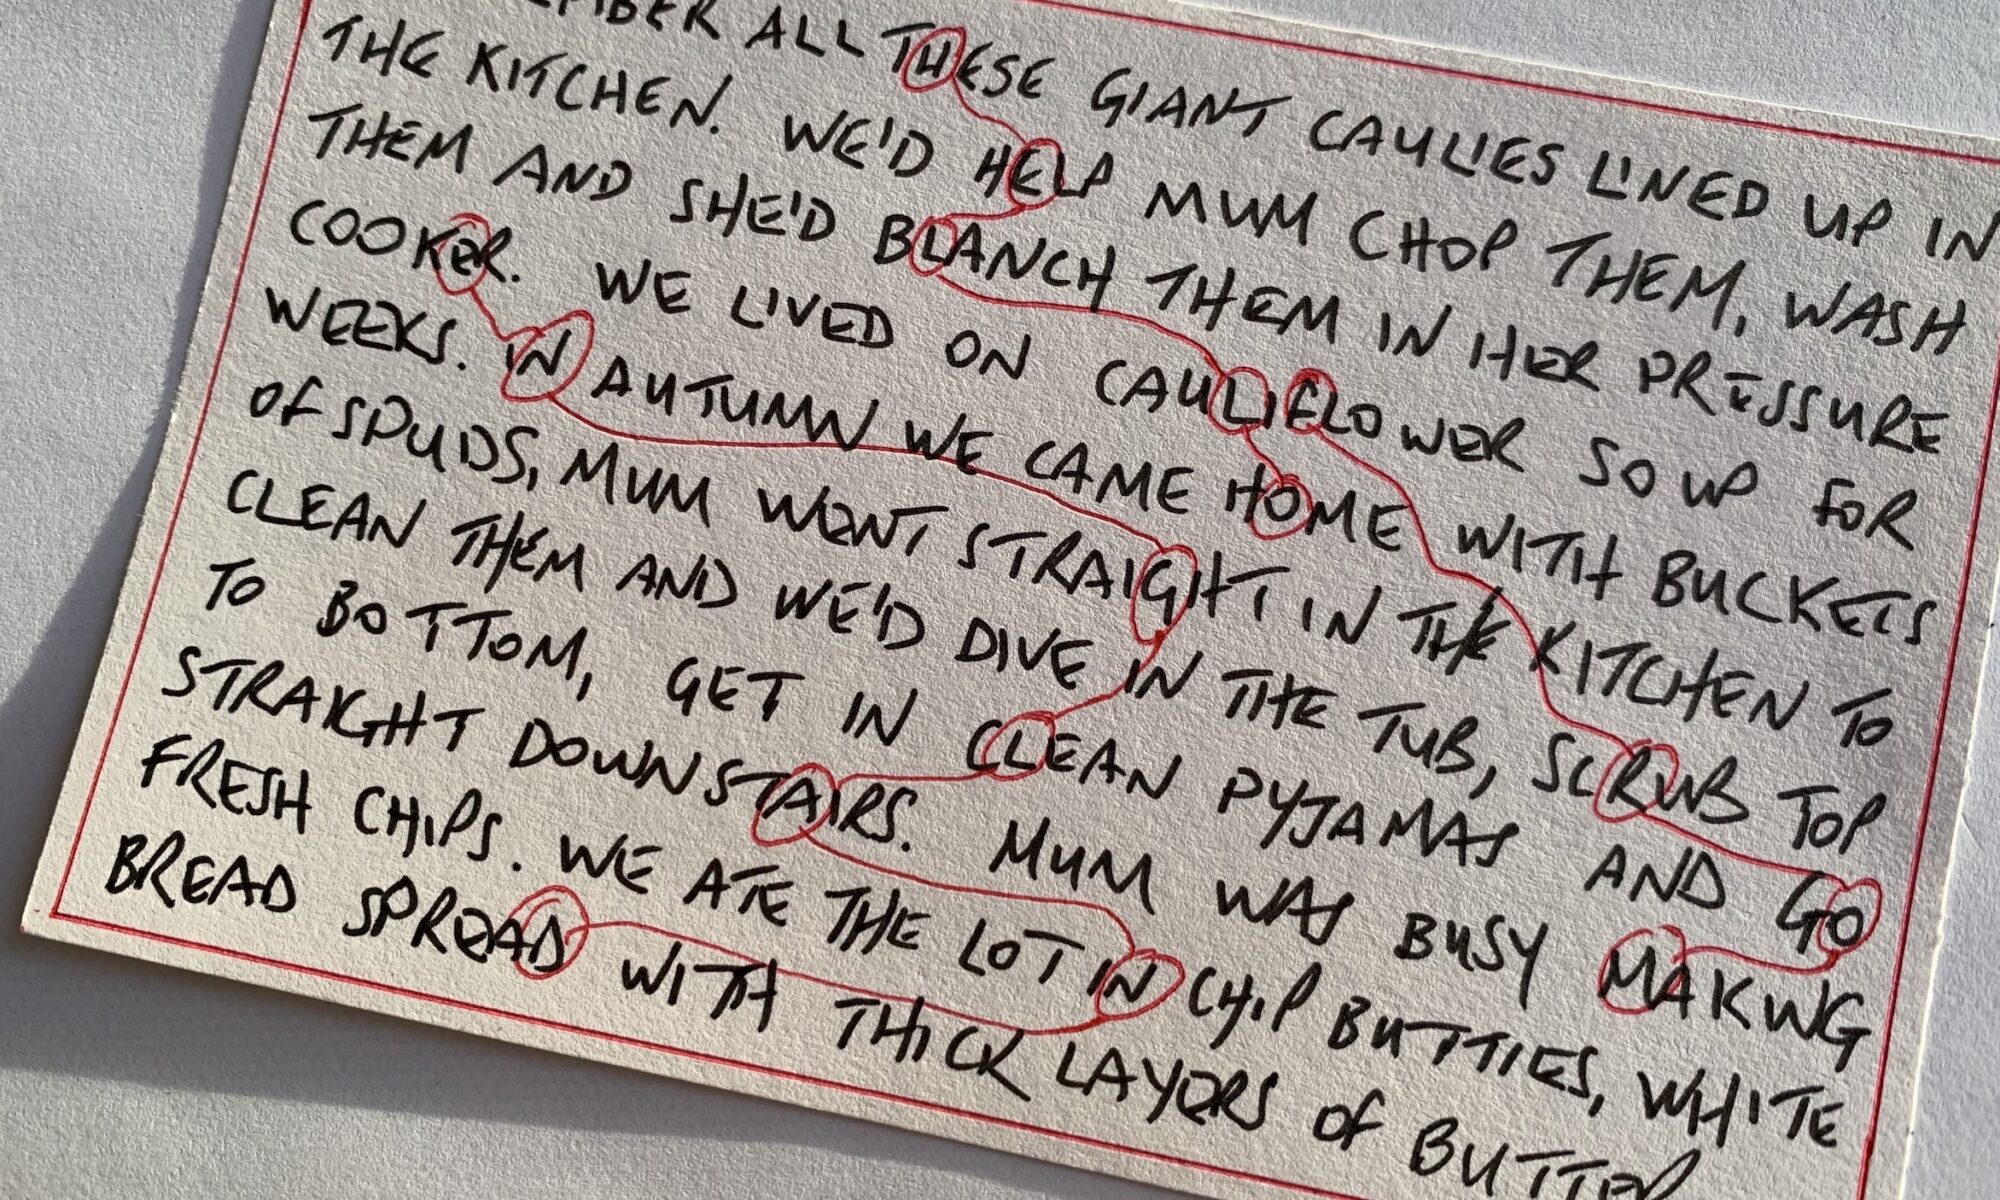 ALL THESE GIANT CAULIES LINED UP IN
THE KITCHEN. WE'D HELP MUM CHOP THEM, WASH
THEM AND SHE'D BLANCH THEM IN HER PRESSURE
COOKER. WE LIVED ON CAULIFLOWER SOUP FOR
WEEKS. IN AUTUMN WE CAME HOME WITH BUCKETS
OF SPUDS, MUM WENT STRAIGHT IN THE KITCHEN TO
CLEAN THEM AND WE'D DIVE IN THE TUB, SCRUB TOP
TO BOTTOM, GET IN CLEAN PYJAMAS AND GO
STRAIGHT DOWNSTAIRS. MUM WAS BUSY MAKING
FRESH CHIPS. WE ATE THE LOT IN CHIP BUTTIES, WHITE
BREAD SPREAD WITH THICK LAYERS OF BUTTER